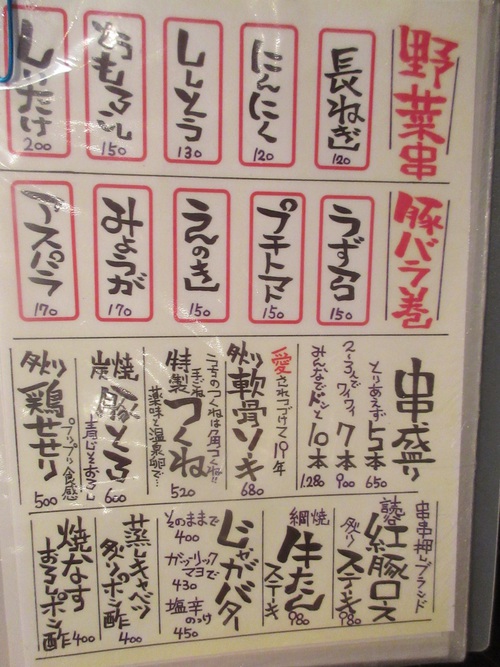 野菜串
長ねぎ
120
にんにく
120
ししとう
130
とうもろこし
150
しいたけ
200
豚バラ巻
うずら
150
プチトマト
150
えのき
150
みょうが
170
アスパラ
170
串盛り
とりあえず5本 650
2〜3人でワイワイ7本 900
みんなでドンと10本 1,280
愛されつづけて19年
炙り軟骨ソーキ
680
うちのつくねは角つくね!!
手ごね
特製つくね
薬味と温泉卵で…
520
炭焼豚とろ
600
炙り鶏せせり
プリプリ食感
500
串串押しブランド
紅豚ロース
炙りステーキ
980
網焼
牛たん
ステーキ
980
じゃがバター
そのままで
400
ガーリックマヨで
430
塩辛のっけ
450
蒸しキャベツ
炙りポン酢 400
焼なす
おろしポン酢 400